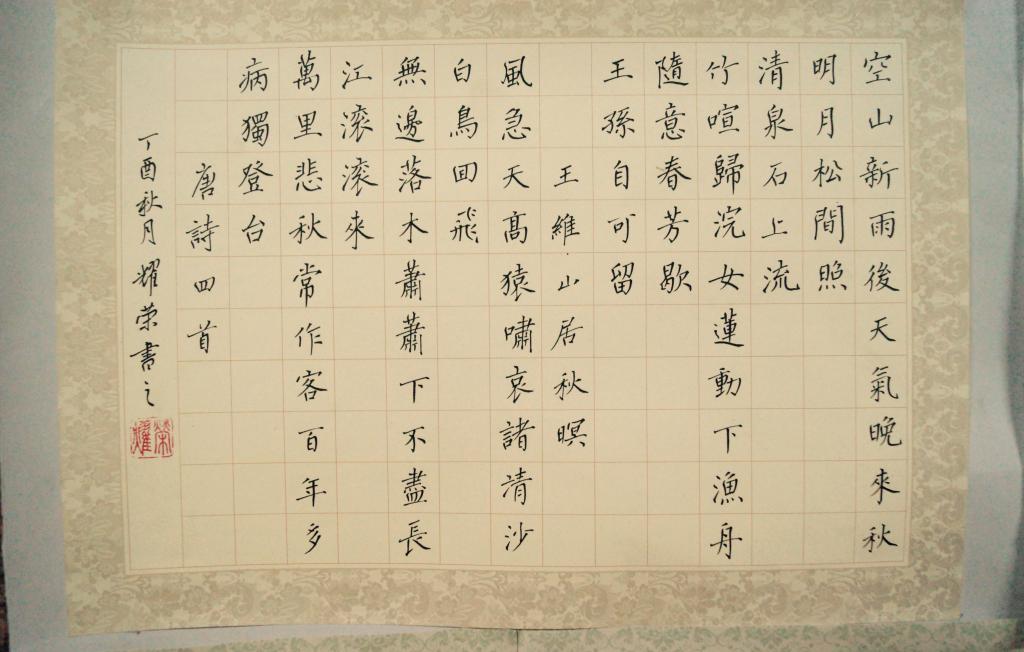 空山新雨後天氣晚來秋
明月松間照
清泉石上流
竹喧歸浣女蓮動下漁舟
隨意春芳歇
王孫自可留
王維山居秋暝
風急天髙猿嘯哀諸清沙
白鳥囬飛
無邊落木蕭蕭下不盡長
江滚滚來
萬里悲秋常作客百年多
病獨登台
唐詩四首
丁酉秋月 耀荣書之
榮耀